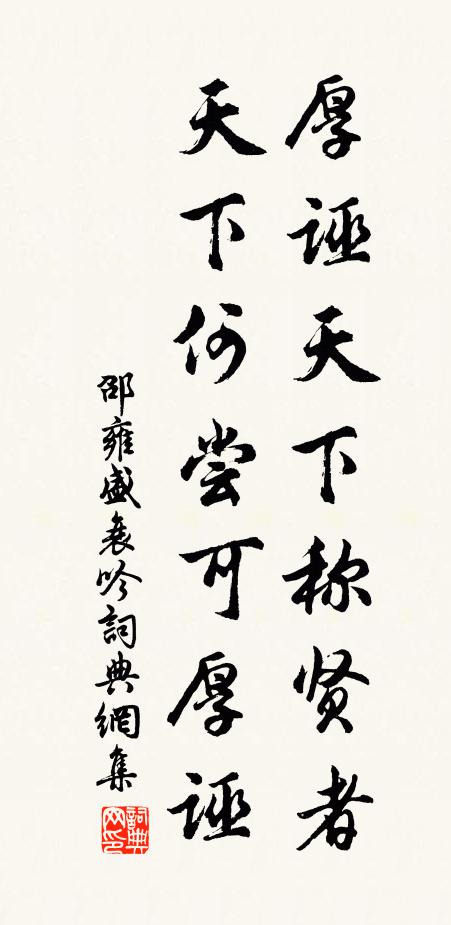 厚诬天下称贤者
天下何尝可厚诬
邵雍盛衰吟詞典網集
詞典网印